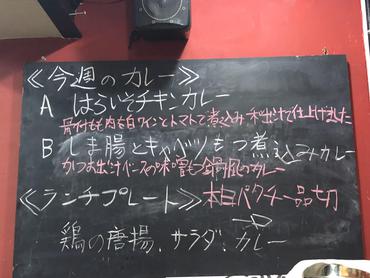 ≪今週のカレー≫
A はらいそチキンカレー
骨付もも肉を白ワインとトマトで煮込み和出汁で仕上げました
B しま腸とキャベツもつ煮込みカレー
かつお出汁ベースの味噌もつ鍋風のカレー
≪ランチプレート≫ 本日パクチー品切
鶏の唐揚、サラダ、カレー